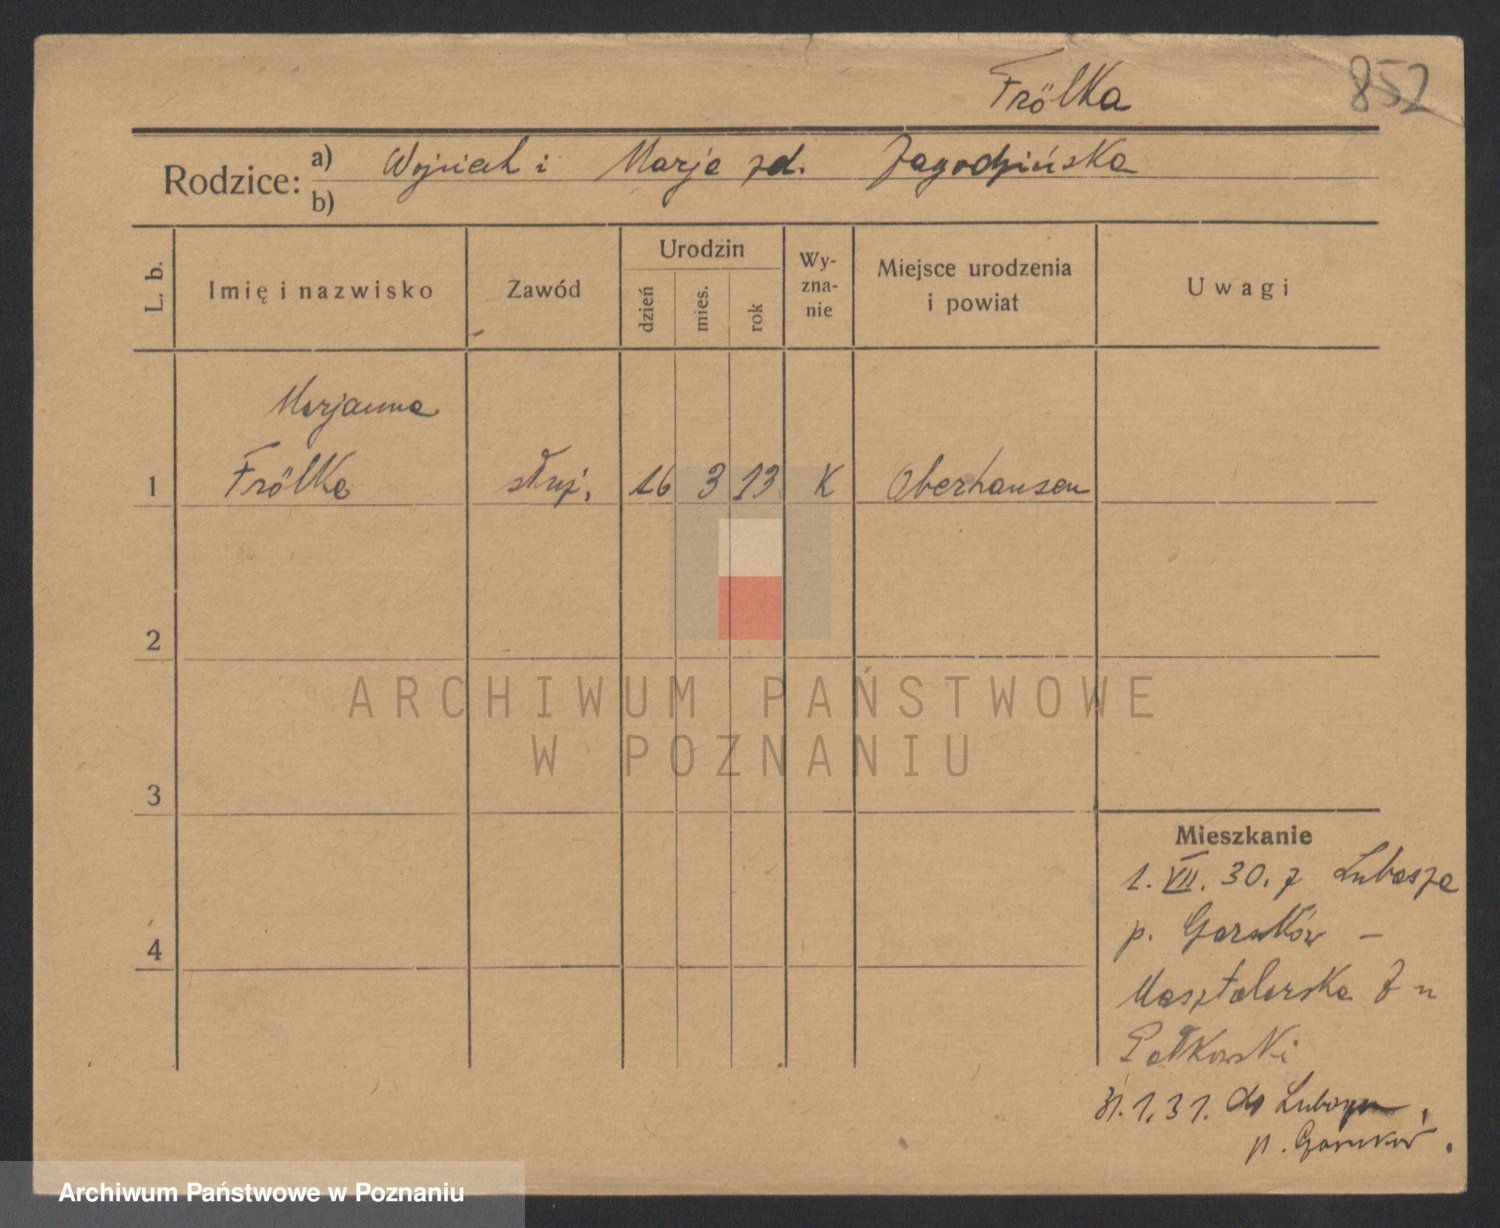 Frölka
852
Rodzice: a) Wojciech i Marja zd. Jagodzińska
b)
L. b.
Imię i nazwisko
Zawód
Urodzin
dzień
mies.
rok
Wy-
zna-
nie
Miejsce urodzenia
i powiat
Uwagi
Marjanna
1 Frölka służ. 16 3 13 K Oberhausen
2
3
4
Mieszkanie
1. VII. 30. z Lubasza
p. Czarnków –
Masztalarska 7 u
31.1.31. do Lubasza,
p. Czarnków.
ARCHIWUM PAŃSTWOWE
W POZNANIU
Archiwum Państwowe w Poznaniu